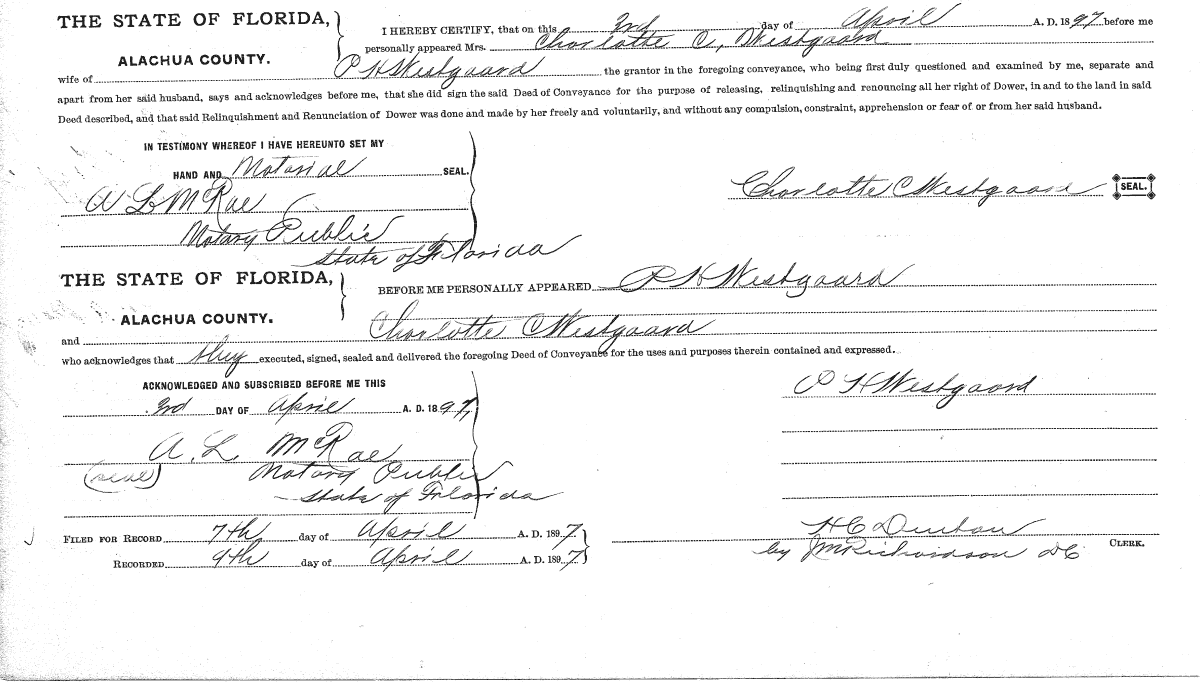 THE STATE OF FLORIDA,
ALACHUA COUNTY.
I HEREBY CERTIFY, that on this 3rd day of April A. D. 1897 before me
personally appeared Mrs. Charlotte C, Westgaard
wife of P H Westgaard the grantor in the foregoing conveyance, who being first duly questioned and examined by me, separate and
apart from her said husband, says and acknowledges before me, that she did sign the said Deed of Conveyance for the purpose of releasing, relinquishing and renouncing all her right of Dower, in and to the land in said
Deed described, and that said Relinquishment and Renunciation of Dower was done and made by her freely and voluntarily, and without any compulsion, constraint, apprehension or fear of or from her said husband.
IN TESTIMONY WHEREOF I HAVE HEREUNTO SET MY
HAND AND Notarial SEAL.
A L McRae
Notary Public
State of Florida
Charlotte C Westgaard SEAL.
THE STATE OF FLORIDA,
ALACHUA COUNTY.
BEFORE ME PERSONALLY APPEARED P H Westgaard
and Charlotte C Westgaard
who acknowledges that they executed, signed, sealed and delivered the foregoing Deed of Conveyance for the uses and purposes therein contained and expressed.
ACKNOWLEDGED AND SUBSCRIBED BEFORE ME THIS
3rd DAY OF April A. D. 1897,
A. L. McRae
(seal) Notary Public
State of Florida
P H Westgaard
FILED FOR RECORD 7th day of April A. D. 1897
RECORDED 9th day of April A. D. 1897
H C Denton
by J M Richardson DC CLERK.